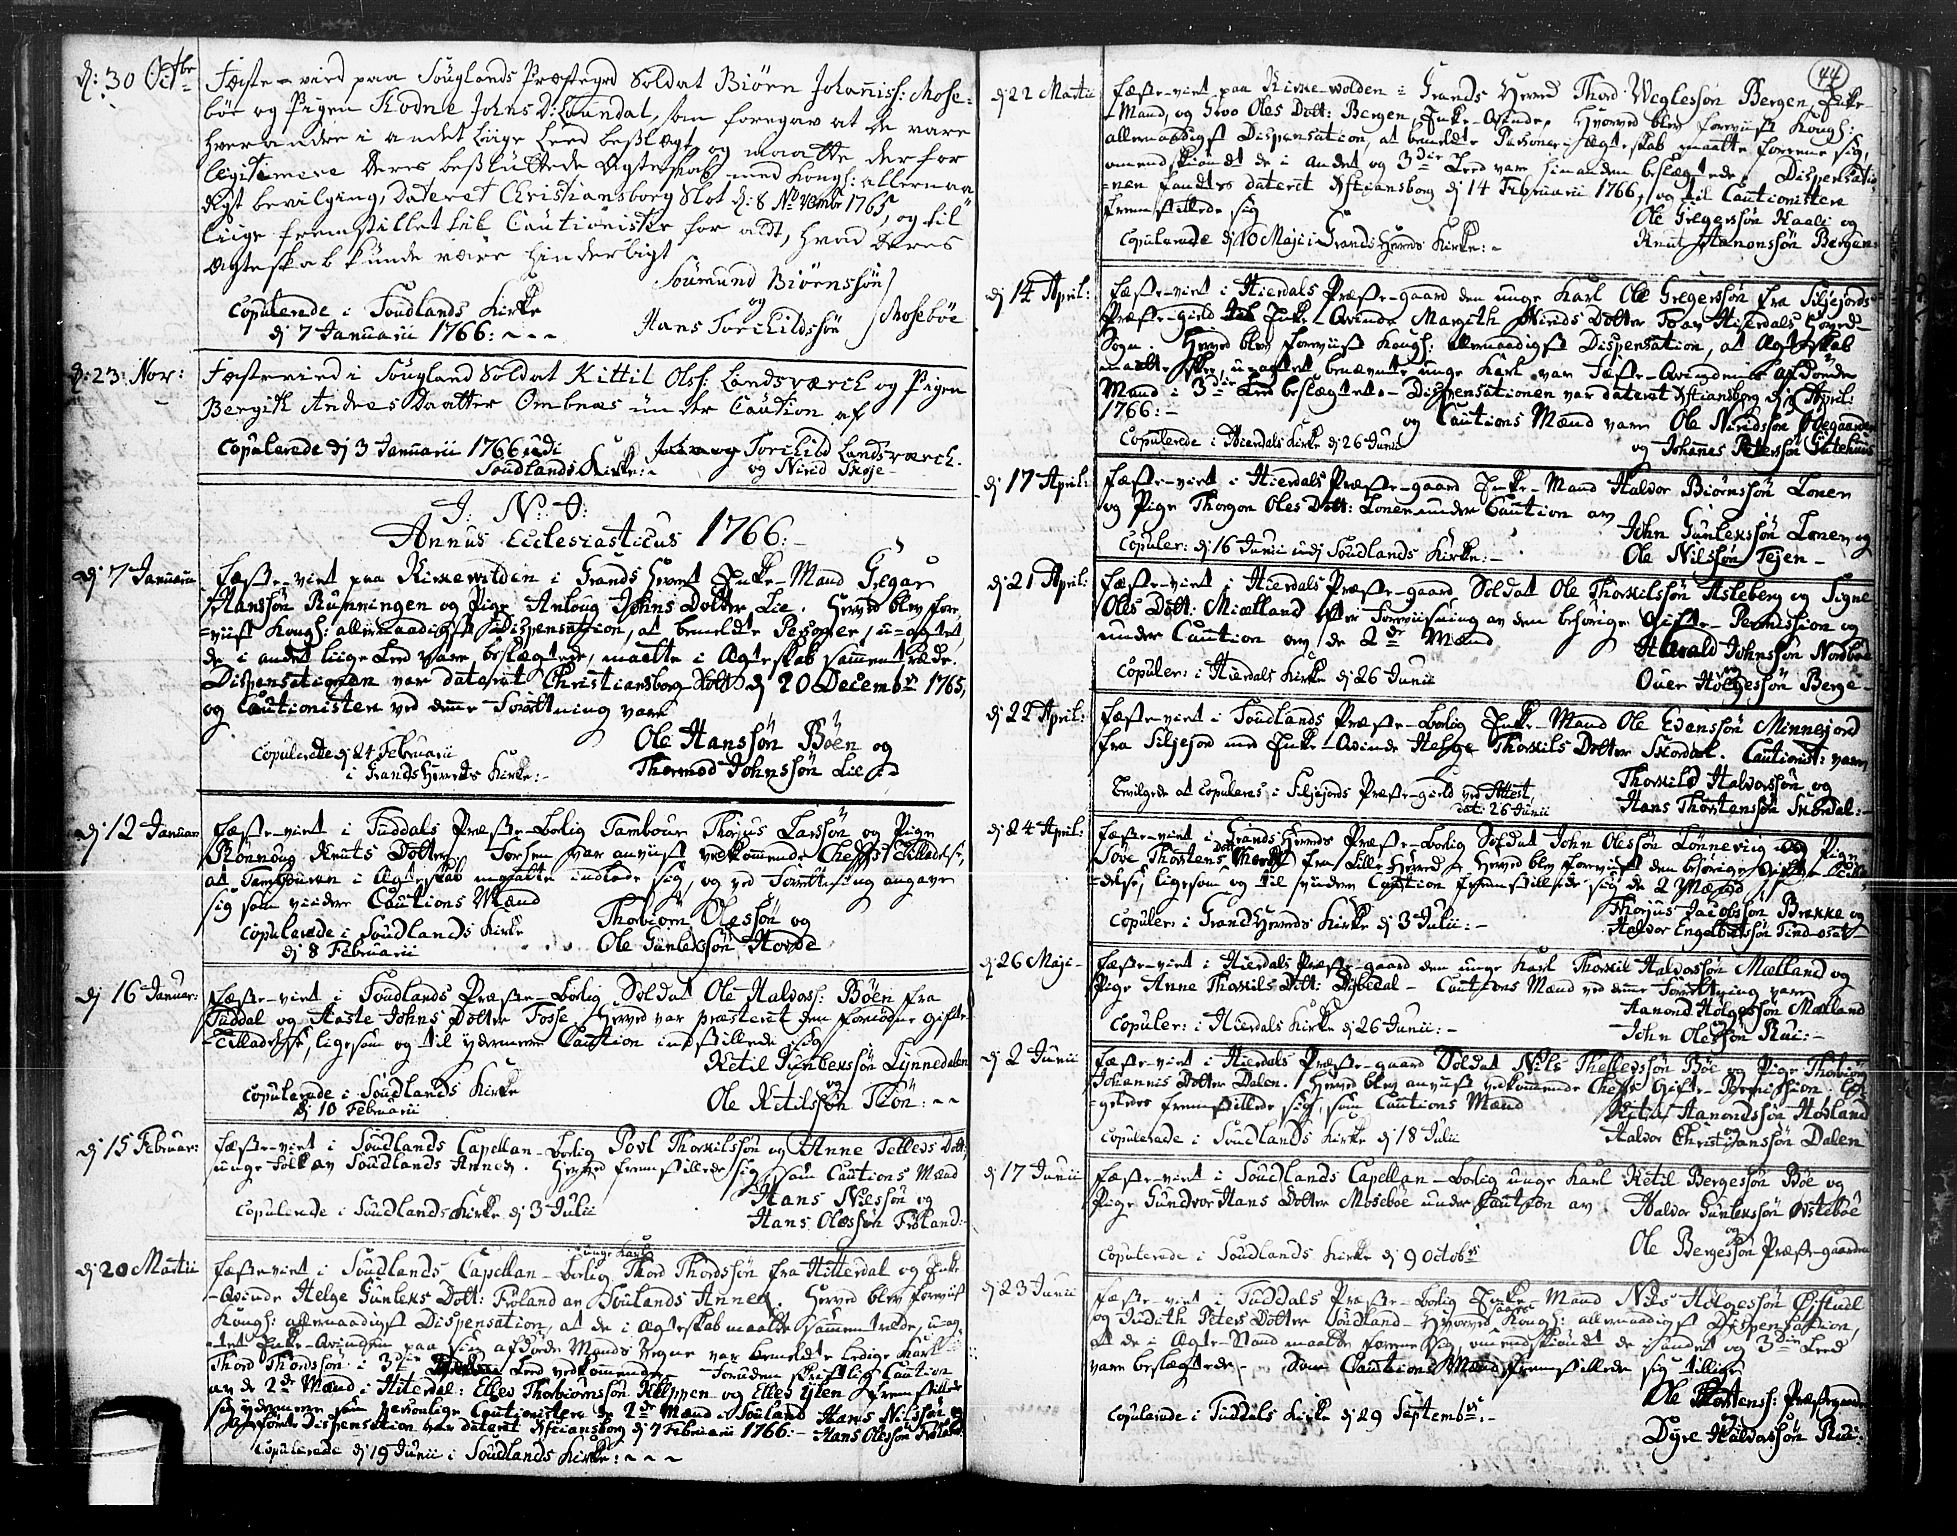 d: 30 Octbr
Fæste-vied paa Souglands Præstegrd Soldat Biørn Johanisß: Mose-
böe og Pigen Johns D: Löundal, som foregav at de vare
hverandre i andet Liige Leed beßlægt, og maatte derfor
legitimere deres beßluttede Ægteskab med Kongl: allernaa-
digst bevilging, Dateret Christiansborg Slot d: 8 Novembr 1765, og til
liige fremstillet til Cautionister for aldt, hvad Deres
Ægteskab kunde være hinderligt
Soumund Biörnssön
og
Hans Torchildssön
Moseböe
Copulerede i Soudlands Kirke
dj 7 Januarii 1766: ~ ~ ~
d: 23 Nov:
Fæstevied i Sougland Soldat Kittil Olsß: Landsværch og Pigen
Bergith Andres Daatter Ombnæs under Caution af
Torchild Landsværch.
og Nirid Skoje
Copulerede dj 3 Januarii 1766 udi
Soudlands Kirke:-
J. N. J:
Annus Ecclesiasticus 1766:-
dj 7 Januarii
Fæste-viet paa Kirkevolden i Grands Herret Enke-Mand Gregar
Hanssön Runningen og Pige Anloug Johns Dotter Lie. Herved blev fore
=viist Kongl: allernaadigst Dispensation, at bemeldte Personer, u-agtet
de i andet liige Leed vare beslægtede, maatte i Ægteskab sammentræde.
Dispensationen var dateret Christiansborg Slot dj 20 Decembr 1765,
og Cautionister ved denne Forrettning vare
Ole Hanssön Böen og
Thormod Johnssön Lie
Copulerede dj 24 Februarii
i Grands Herrets Kirke:-
dj 12 Januar
Fæste-viet i Tuddals Præste-Bolig Tambour Thorjus Larssön og Pige
Rönnoug Knuts Dotter Forhen var anviist vedkommende Chefs Tilladelse,
at Tambouren i Ægteskab maatte indlade sig, og ved Forrettning angave
sig som videre Cautions Mænd
Thorbiörn Olessön og
Ole Gunlekssön Hovde
Copulerede i Soudlands Kirke
dj 8 Februarii
dj 16 Januar:
Fæste-viet i Soudlands Præste-Bolig Soldat Ole Halvorsß: Böen fra
Tuddal og Aaste Johns Dotter Fosse Herved var præsteret den fornödne Gifte
=Tilladelse, ligesom og til ydermere Caution indstillede sig
Ketil Gunlekssön Lynnedalen
og
Ole Ketilssön Skön: ~~
Copulerede i Soudlands Kirke
dj 10 Februarii
dj 15 Februar:
Fæste-viet i Soudlands Capellan-Bolig Povl Thorkilssön og Anne Tellevs Dott:
unge Folk av Soudlands Annex. Herved fremstillede sig som Cautions Mænd
Hans Nilssön og
Hans Olessön Fröland:
Copulerede i Soudlands Kirke dj 3 Julii
dj 20 Martii
unge Karl
Fæste-viet i Soudlands Capellan-Bolig Thord Thordssön fra Hitterdal og Enke
-Qvinde Helge Gunleks Dott: Fröland av Soulands Annex. Herved blev foreviist
Kongl: allernaadigst Dispensation, at de i Ægteskab maatte sammentræde, uag
=tet Enke-Qvinden paa sin afdöde Mands Vegne var bemeldte ledige Karl
Thord Thordssön i 3die Leed vedkommende. Foruden skriftlig Caution
av de 2de Mænd i Hiterdal: Ellev Thorbiörnssön Kleppen og Ellev Ysten fremstillede
sig ydermere som personlige Cautionister de 2de Mænd i Souland Hans Nilssön og
Hans Olessön Fröland
Dispensation var dateret Christiansborg dj 7 Februarii 1766:-
Copulerede dj 19 Junii i Soudlands Kirke: ~ ~ ~
44
dj 22 Martii
Fæste-viet paa Kirke-volden i Grands Herred Thord Weglessön Bergen, Enke
-Mand, og Groo Oles Dott: Bergen, Enke-Qvinde. Hvorved blev foreviist Kongl:
allernaadigst Dispensation, at bemeldte Personer i Ægteskab maatte forene sig,
omendskiöndt de i andet og 3die Leed vare hinanden beslægtede. Dispensatio
=nen fandtes dateret Christiansborg dj 14 Februarii 1766, og til Cautionister
fremstillede sig
Ole Gregerssön Kaali og
Knut Hanonssön Bergen:
Copulerede dj 10 Maji i Grands Herrets Kirke:-
dj 14 April:
Fæste-viet i Hierdals Præste-gaard den unge Karl Ole Gregerssön fra Siljejords
Præste-gield Enke-Qvinde Margith Nirids Dotter av Hierdals Hoved-
Sogn. Herved blev foreviist Kongl: allernaadigst Dispensation, at Ægteskab
maatte skee, uagtet benævnte unge Karl var Fæste-Qvindens afdöde
Mand i 3die Leed beslægtet. - Dispensationen var dateret Christiansborg dj April:
1766:-
og Cautions Mænd vare Ole Niridssön Ödegaarden
og Johanes Peterssön
Copulerede i Hierdals Kirke dj 26 Junii
dj 17 April:
Fæste-viet i Hierdals Præste-gaard Enke-Mand Halvor Biörnssön Lonen
og Pige Thorgon Oles Dott: Lonen under Caution av
John Gunlekssön Lonen og
Ole Nilssön Tejen -
Copuler: dj 16 Junii udj Soudlands Kirke:-
dj 21 April:
Fæste-viet i Hierdals Præste-gaard Soldat Ole Thorkilssön Asleberg og Signe
Oles Dott: Miælland efter Foreviisning av den behörige Gifte-Permission og
under Caution av de 2de Mænd
Harald Johnssön Nordböe
og
Over Hölgessön Berge -
Copuler: i Hierdals Kirke dj 26 Junii
dj 22 April:
Fæste-viet i Soudlands Præste-Bolig Enke-Mand Ole Evenssön Minnejord
fra Siljejord med Enke-Qvinde Helge Thorkils Dotter Skordal. Cautionist: vare
Thorkild Halvorssön og
Hans Thorstenssön Skordal:-
Bevilgede at copuleres i Siljejords Præste-gield ved Attest
dat: 26 Junii
dj 24 April:
Fæste-viet i Grands Herrets Præste-Bolig Soldat John Olessön Lönnevig og Pige
Söve Thorstens Dotter fra Lille-Herred. Herved blev foreviist den behörige Gifte-Tilla
=delse, ligesom og til videre Caution fremstillede sig de 2 Mænd
Thorjus Jacobssön Brekke og
Halvor Engelbretssön Tind-oset
Copuler: i Grand Herrets Kirke dj 3 Julii:-
dj 26 Maji-
Fæste-viet i Hierdals Præste-gaard den unge Karl Thorkil Halvorssön Mælland og
Pige Anne Thorkils Dott: Dysedal - Cautions Mænd ved denne Forrettning vare
Hanond Holgessön Mælland
John Olessön Rui:-
Copuler: i Hierdals Kirke dj 26 Junii:-
dj 2 Junii
Fæste-viet i Hierdals Præste-gaard Soldat Nils Thellevssön Böe og Pige Thorbiörg
Johannis Dotter Dalen. Herved blev anviist vedkommende Chefs Gifte-Permission. Li
=geledes fremstillede sig, som Cautions Mænd
Ketil Hanondssön Hovland
og
Halvor Christianssön Dalen
Copulerede i Soudlands Kirke dj 18 Julii
dj 17 Junii
Fæste-viet i Soudlands Capellan-Bolig unge Karl Ketil Bergessön Böe og
Pige Gundvor Hans Dotter Moseböe under Caution av
Halvor Gunlekssön Østeböe
og
Ole Bergessön Præste-gaarden
Copulerede i Soudlands Kirke dj 9 Octobr
dj 23 Junii
Fæste-viet i Tuddals Præste-Bolig Enke-Mand Nils Hölgessön Øistull
og Judith Peters Dotter Soudland - Hvorved Kongl: allernaadigst Dispensation,
at de i Ægte-Stand maatte forene sig, omendskiöndt de i andet og 3die Leed
vare beslægtede - Som Cautions Mænd fremstillede sig tillige
Ole Thorstensß: Præstegaarden
og
Dyre Halvorssön Rui:
Copulerede i Tuddals Kirke dj 29 Septembr:-